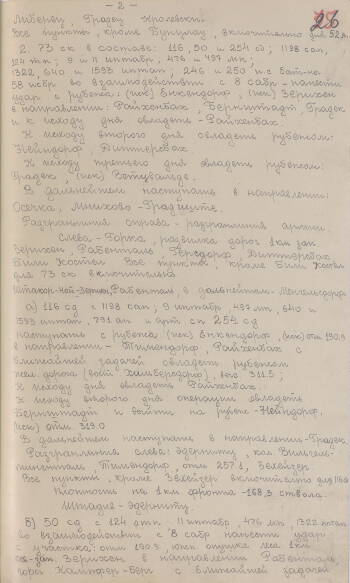 - 2 -
Либерец, Градец Кролевски.
Все пункты, кроме Бунцлау, включительно для 52 А.
2. 73 ск в составе: 116, 50 и 254 сд; 1198 сап,
124 тк; 9 и 11 иптап, 476 и 497 мп;
1322, 640 и 1593 иптап; 246 и 250
58 исбр во взаимодействии с 8 сабр - нанести
удар с рубежа: (иск) Енкендорф, (иск) Зерихен
в направлении: Райхенбах, Бернштадт, Градек
и к исходу дня овладеть - Райхенбах.
К исходу второго дня овладеть рубежом:
Нейндорф, Диттерсбах
К исходу третьего дня овладеть рубежом:
Градек, (иск) Кетувальде.
В дальнейшем наступать в направлении:
Осечка, Мнихово-Градиште.
Разгранлиния справа - разгранлиния армии.
Слева - Горка, развилка дорог 1 км зап
Зерихен, Рабенталь, Герсдорф, Виттгендорф
Били Костел. Все пункты, кроме Били Костел
для 73 ск включительно
Рабенталь в дальнейшем - Менгельсдорф
а) 116 сд с 1198 сап; 9 иптап, 497 мп, 640 и
1593 иптап, 791 ап и арт. сп 254 сд
наступать с рубежа: (иск) Енкендорф, (иск) отм 190.9
в направлении - Тиллендорф, Райхенбах с
ближайшей задачей овладеть рубежом
жел. дорога (вост. Хильберсдорф), выс 311.5;
К исходу дня овладеть Райхенбах.
К исходу второго дня операции овладеть
Бернштадт и выйти на рубеж - Нейндорф,
(иск) отм. 319.0
В дальнейшем наступать в направлении - Градек.
Разгранлиния слева: Эдерниту, кан. Вильгель-
минненталь, Тиллендорф, отм 257.1, Зехейзер
Все пункты, кроме Зехейзер включительно для 116 сд
Плотность на 1 км фронта - 168.3 ствола.
Штадив - Эдерниту.
б) 50 сд с 124 отк. 11 иптап, 476 мп, 1322 иптап
во взаимодействии с 8 сабр нанести удар
с участка: отм 190.9, юкн. опушка леса 1 км
Зерихен в направлении Рабенталь
гора Кампфер-Берг с ближайшей задачей